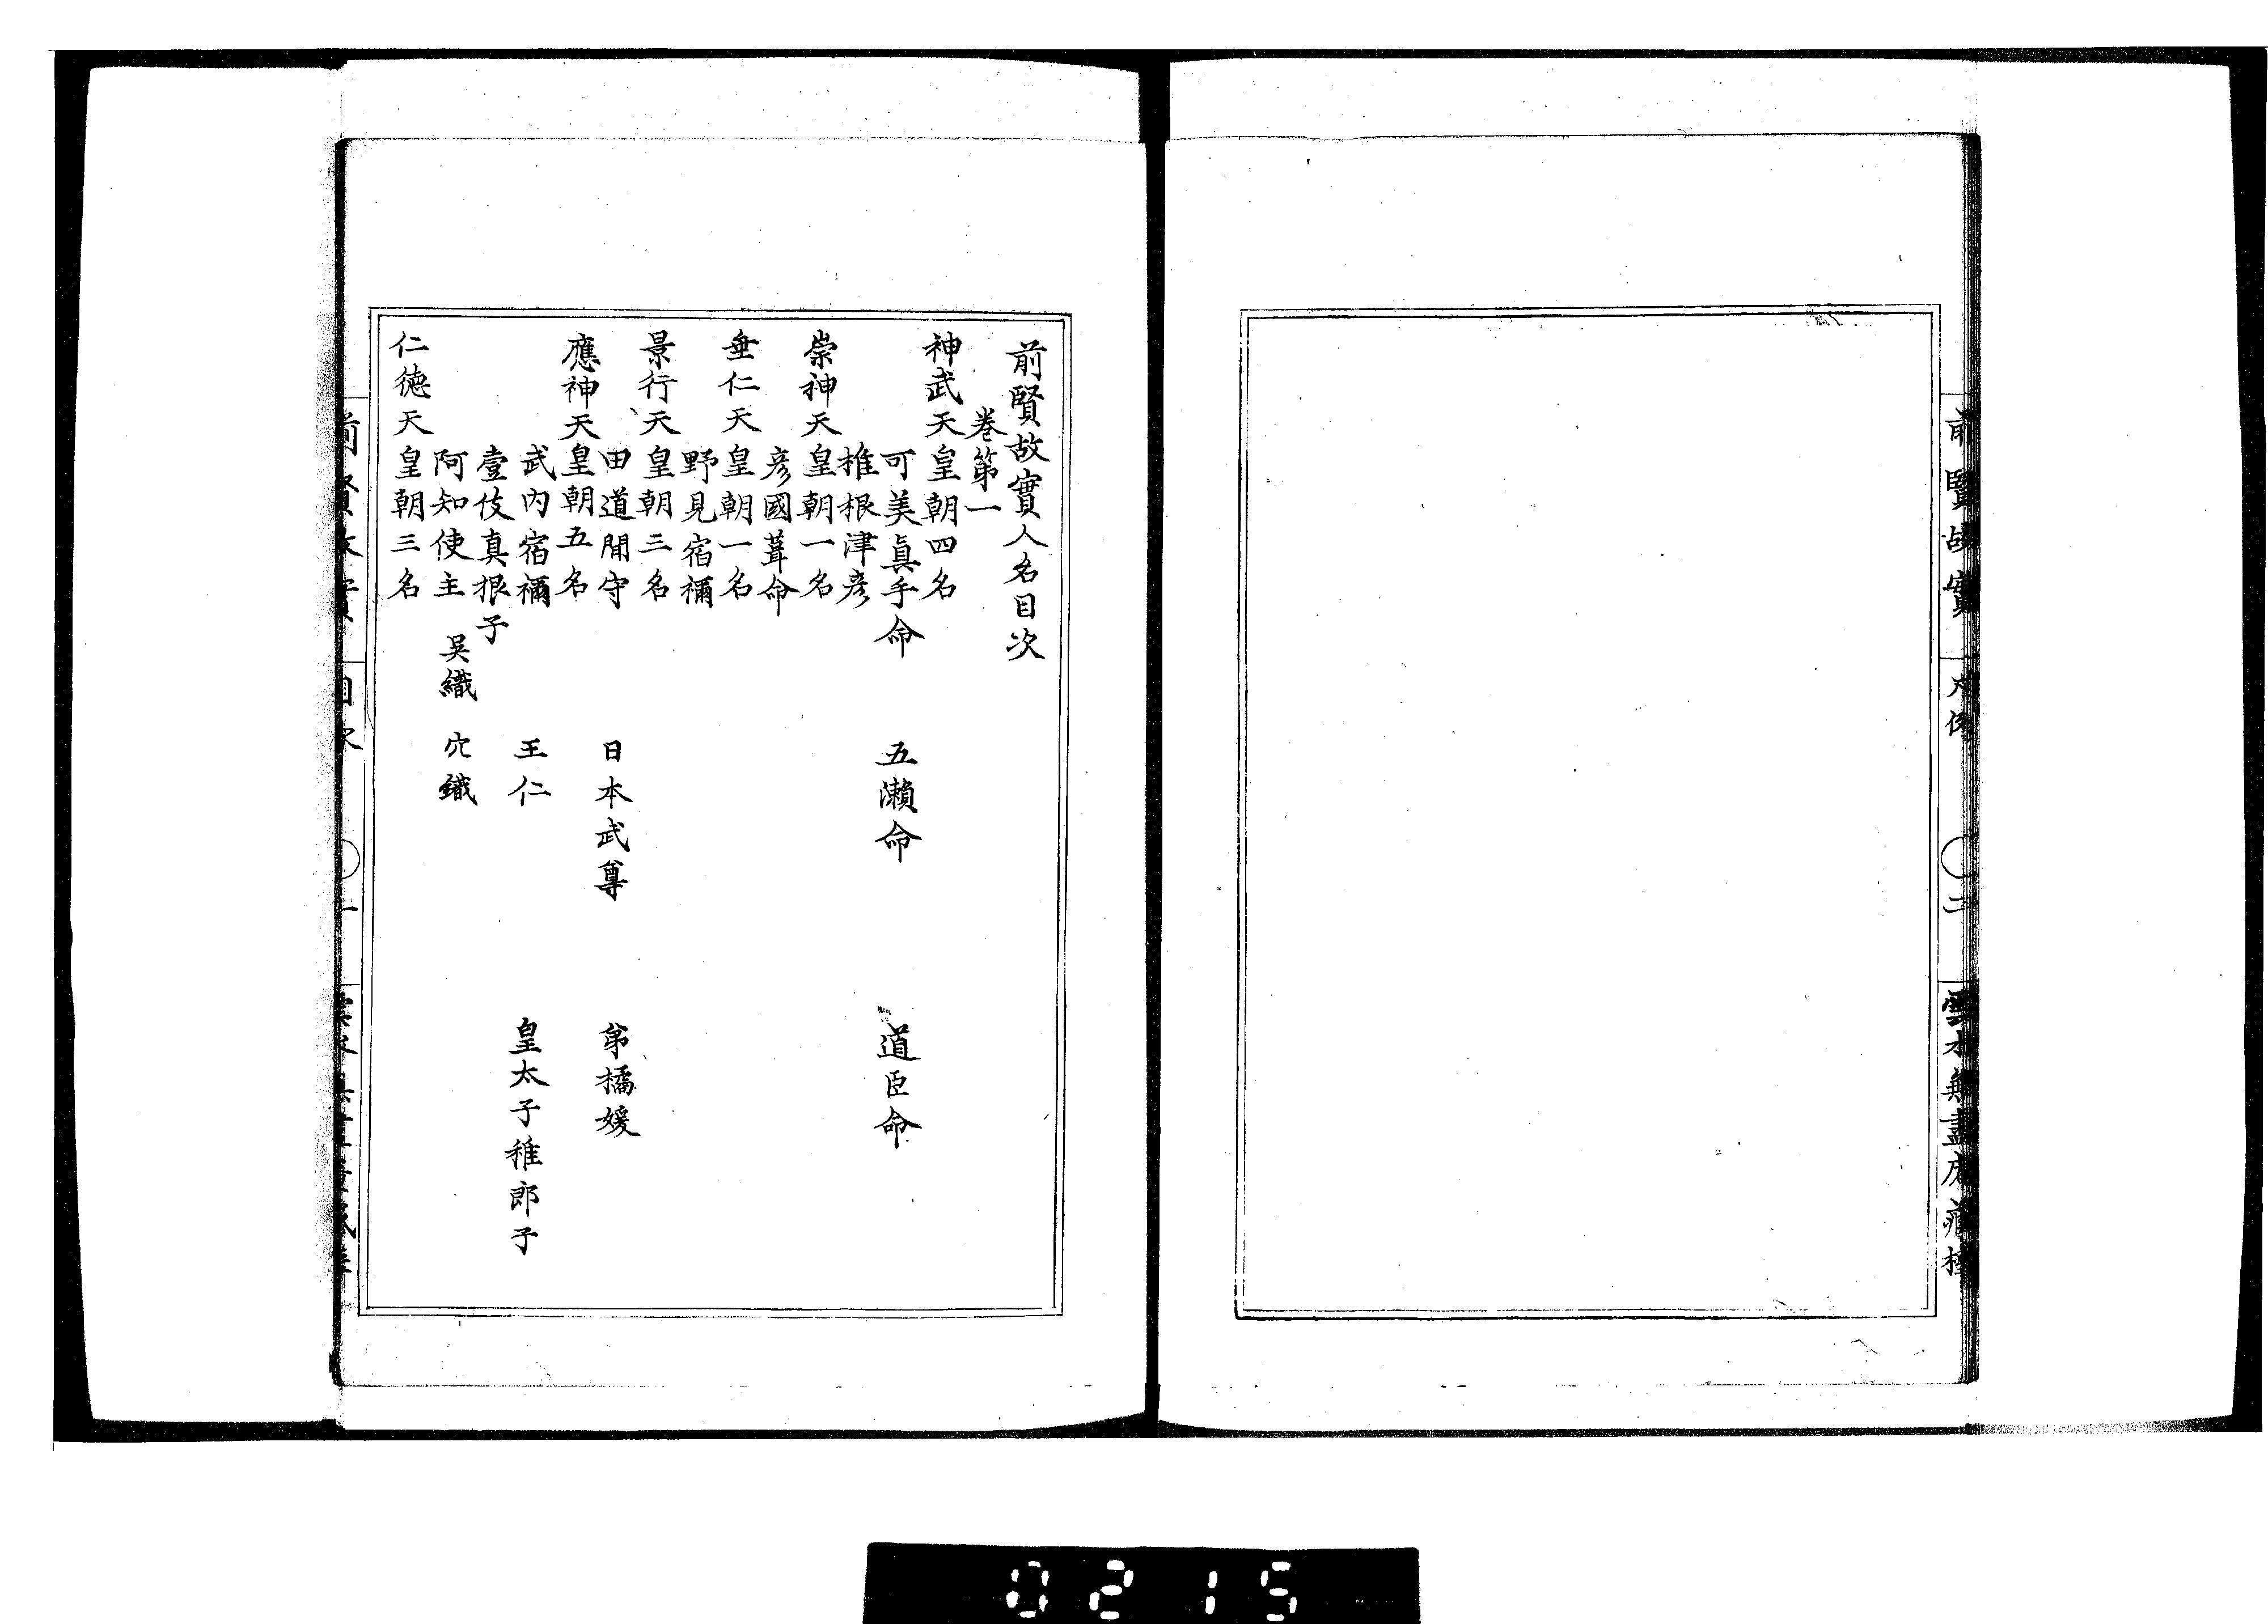 前賢故實
凡例
二
前賢故實人名目次
巻第一
神武天皇朝四名
可美眞手命 五瀬命 道臣命
椎根津彦
崇神天皇朝一名
彦國葺命
垂仁天皇朝一名
野見宿禰
景行天皇朝三名
田道間守 日本武尊 弟橘媛
應神天皇朝五名
武内宿禰 王仁 皇太子稚郎子
壹伎真根子
阿知使主 呉織 穴織
仁徳天皇朝三名
前賢故實
目次
一
0215